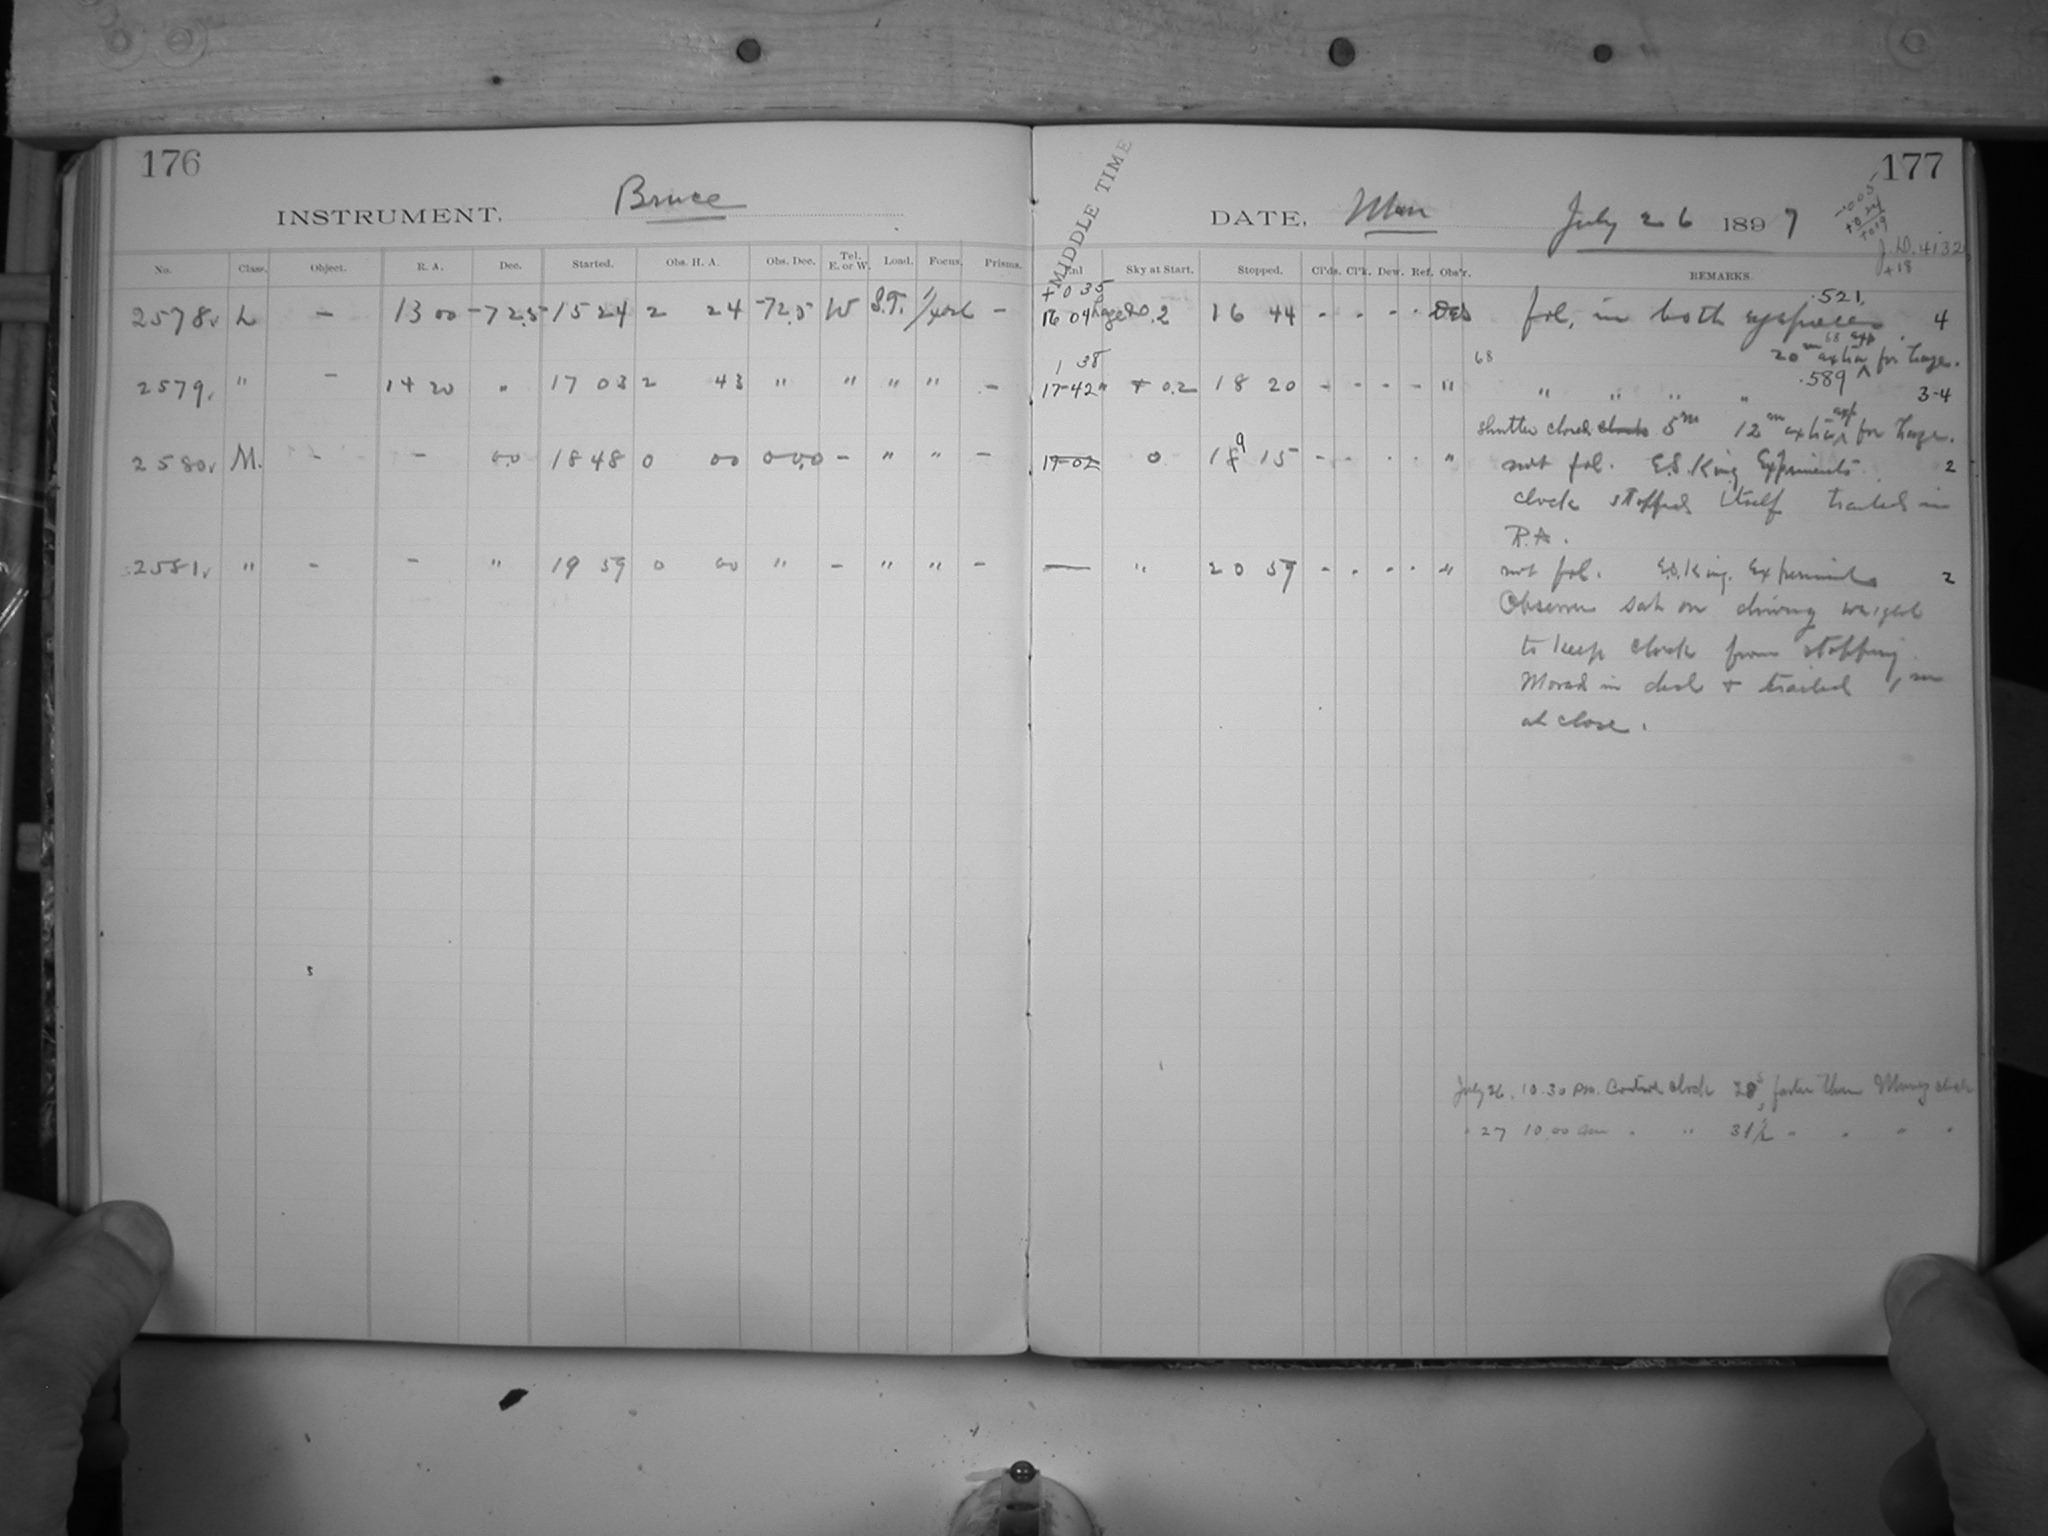 176
INSTRUMENT, Bruce
No. Class. Object. R. A. Dec. Started. Obs. H. A. Obs. Dec. Tel. E. or W. Load. Focus. Prisms.
2578 L - 13 00 -72.5 15 24 2 24 -72.5 W S.T. -
2579 " - 14 20 " 17 03 2 43 " " " " -
2580 M. - - 0.0 18 48 0 00 0 0.0 - " " -
2581 " - - " 19 59 0 00 " - " " -
MIDDLE TIME
177
DATE, Mon July 26 1897
J.D. 4132
+18
Sky at Start. Stopped. Cl'ds. Cl'k. Dew. Ref. Obs'r. REMARKS.
+0 35 .521
16 04 .2 16 44 - - - - fol. in both eyepieces 4
20m for
1 38 .589
17 42 0.2 18 20 - - - - " " " " " 3-4
shutter closed clock 5m 12m for
17 02 0 19 15 - - - - " not fol. E.S. King Experiments 2
clock stopped itself trailed in
R.A.
— " 20 59 - - - - " not fol. E.S. King. Experiments 2
Observer sat on driving weight
to keep clock from stopping
Moved in decl + trailed 1m
at close.
July 26, 10.30 P.m. Control clock 28s faster than clock
" 27 10.00 am " " 31½s " " " "